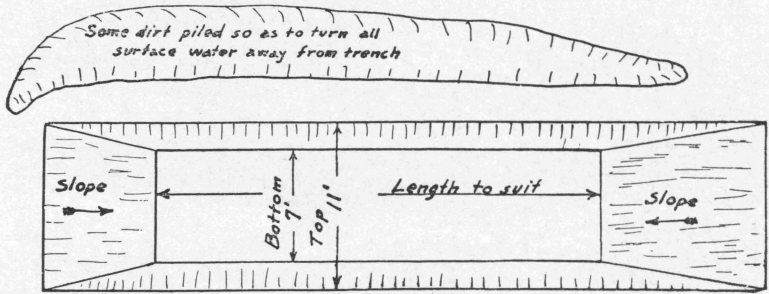 Some dirt piled so as to turn all
surface water away from trench
Slope
Bottom
7'
Top 11'
Length to suit
Slope